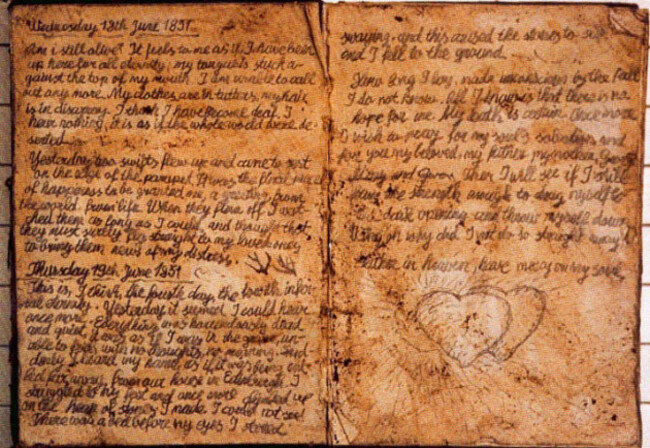 Wednesday 18th June 1851
Am I still alive? It feels to me as if I have been
up here for all eternity, my tongue is stuck a-
gainst the top of my mouth. I am unable to call
out any more. My clothes are in tatters, my hair
is in disarray. I think I have become deaf. I
hear nothing, it is as if the whole world were de-
serted.
Yesterday two swifts flew up and came to rest
on the edge of the parapet. It was the final piece
of happiness to be granted me, a greeting from
the world, from life. When they flew off I wat-
ched them as long as I could, and thought that
they must surely fly straight to my loved ones
to bring them news of my distress.
Thursday 19th June 1851
This is, I think, the fourth day, the fourth
eternity. Yesterday it seemed I could hear
once more. Everything was horrendously dead
and quiet, it was as if I was in the grave, un-
able to with no thoughts, no
I heard my name, as if it was being cal-
led far away, from our house in Edinburgh. I
struggled to my feet and once more up
on the heap of stones I made. I could not see!
There was a before my eyes, I
swaying, and this caused the stones to slip
and I fell to the ground.
How long I lay, made unconscious by the fall
I do not know. All I know is that there is no
hope for me. My death is certain. Once more
I wish to pray for my soul's salvation, and
for you my beloved, my father, my mother,
and Then I will see if I still
have the strength enough to drag myself to
the dark opening and throw myself down.
Why oh why did I not do so straight away!
Father in heaven, have mercy on my soul.